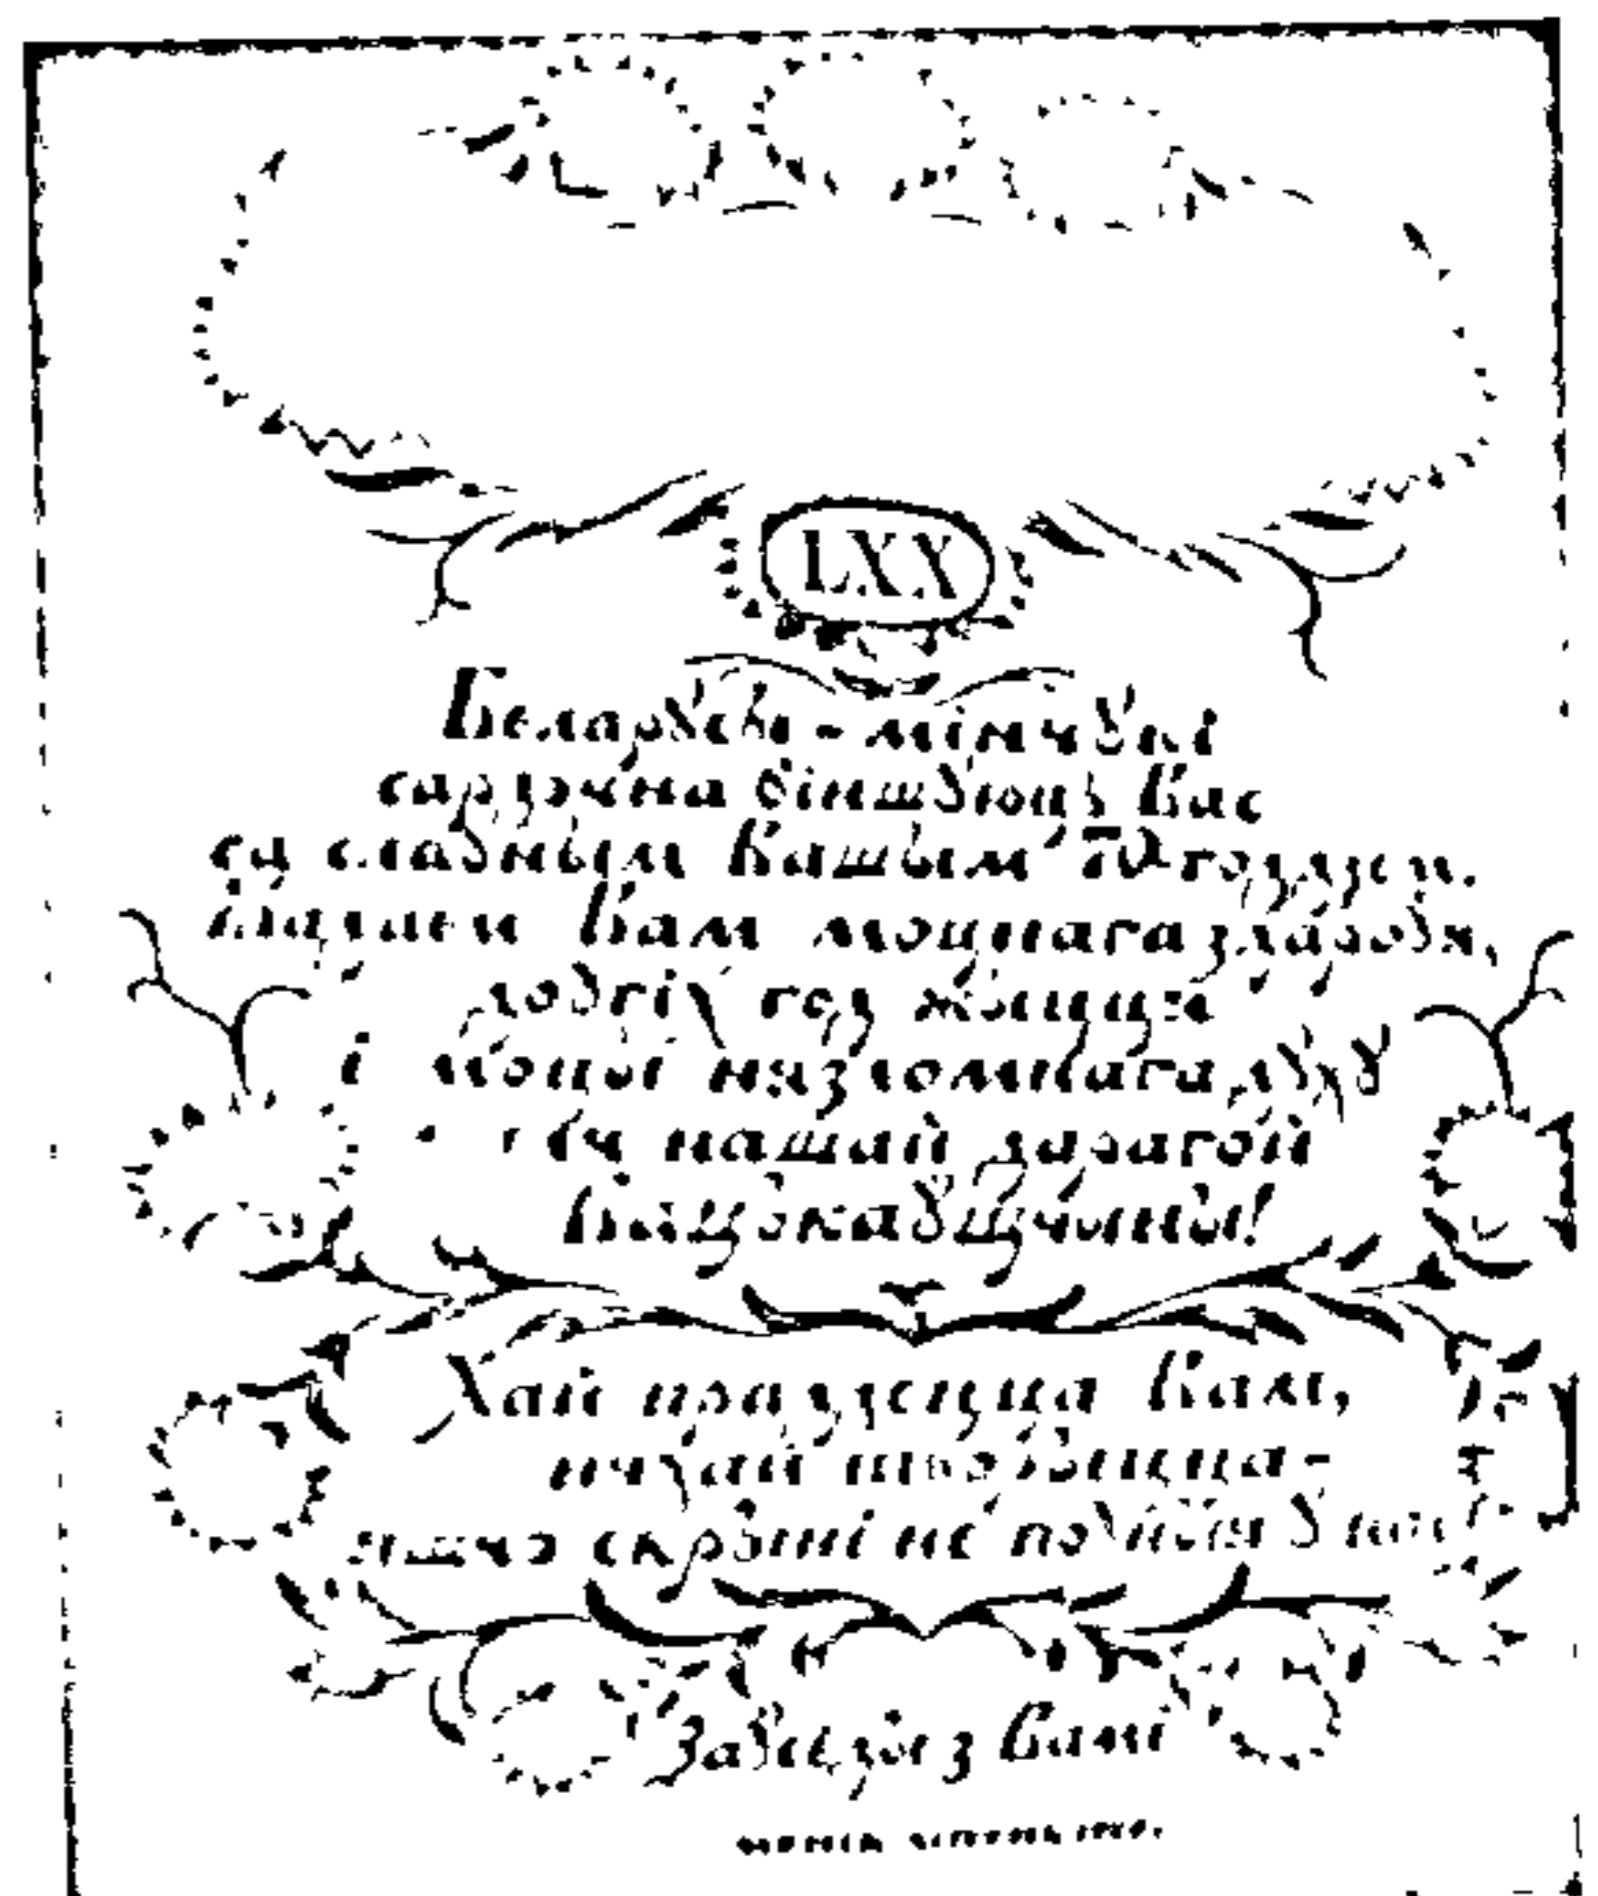 LXX
Беларусы-мінчукі
сардэчна віншуюць Вас
са слаўным Вашым 70-годдзем.
Жадаем Вам моцнага здароўя,
доўгіх год жыцця
і моцы нязломнага духу
ўсёй нашай дарагой
Бацькаўшчыны!
Хай працуецца Вам,
няхай творыцца-
яшчэ скрыні не поўныя ў нас!
Заўсёды з Вамі